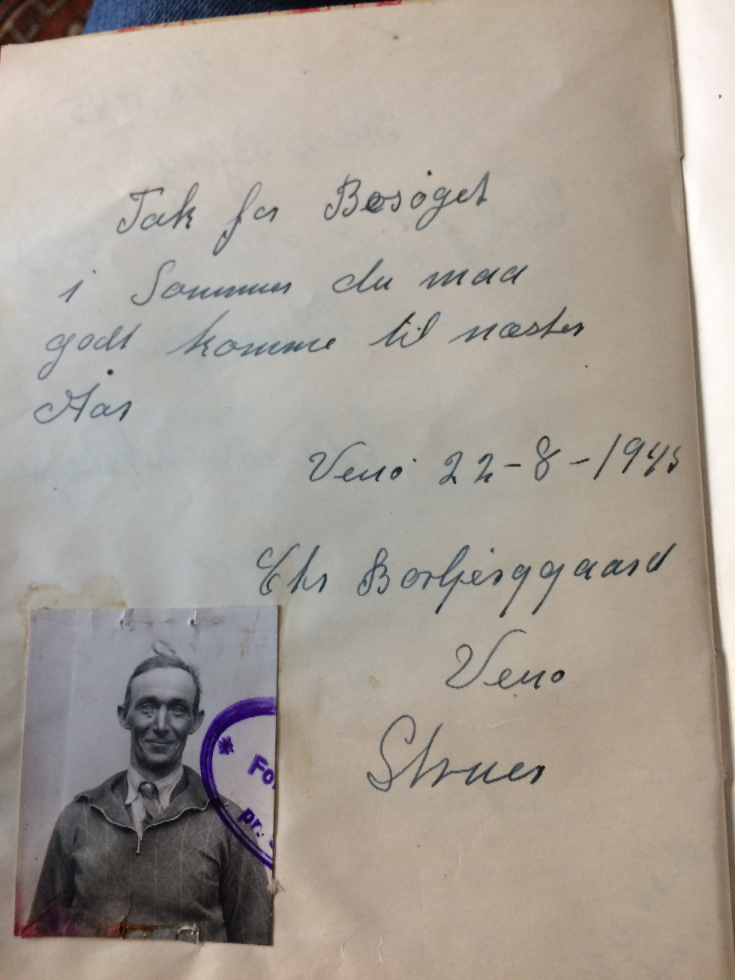 Tak for Besøget
i Sommer du maa
godt komme til næster
Aar
Venö 22-8-1945
Chr Borbjerggaard
Venö
Struer
* Fo
pr. S